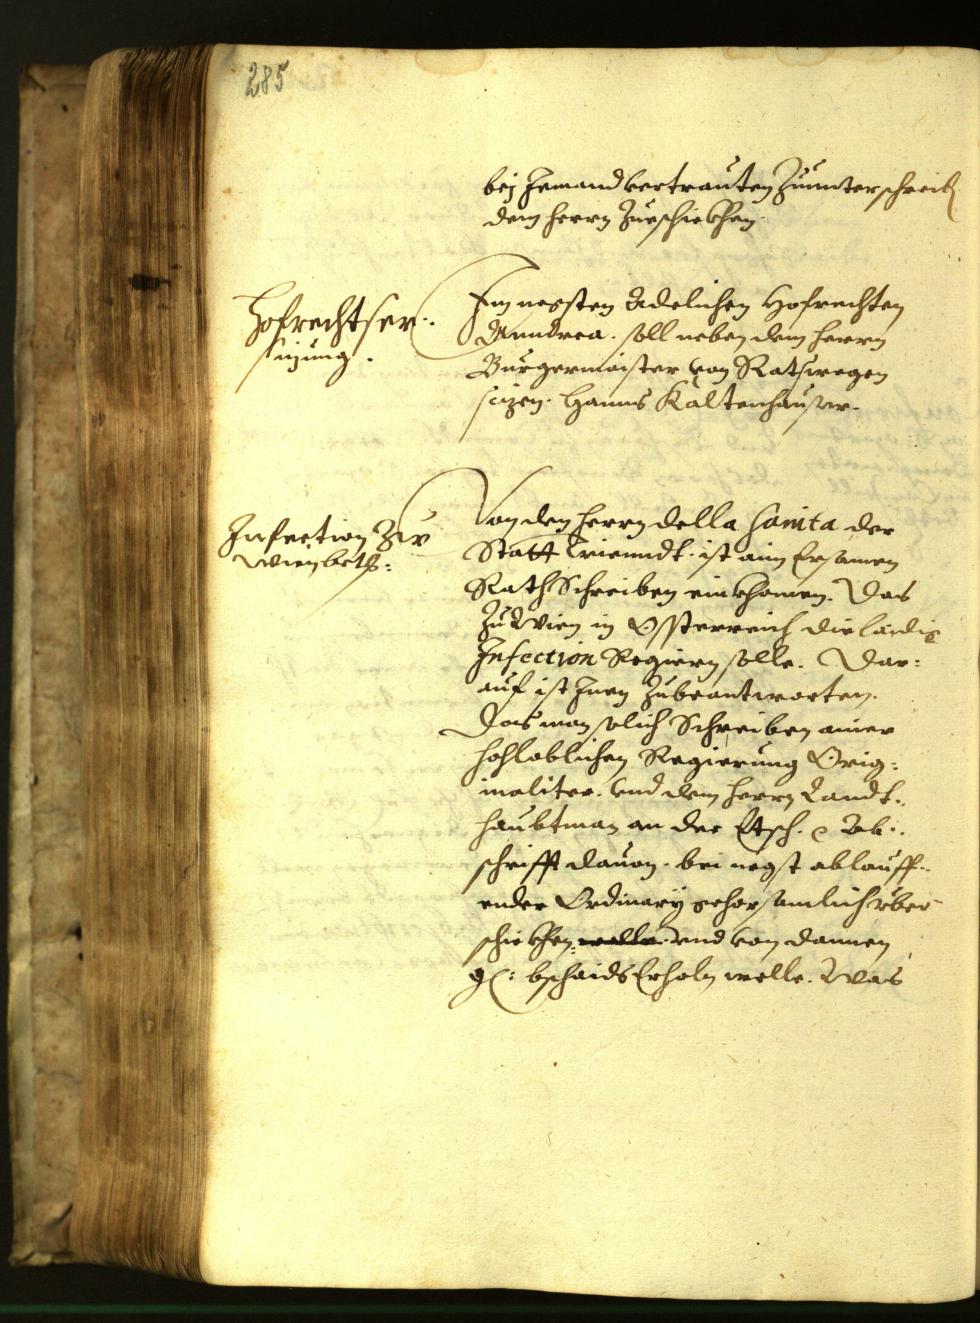 285
bej Jemand vertrauten Zuunterschreib
dem Herrn Zueschickhen.
Hofrechtser:
sizung.
Im negsten Adelichen Hofrechten
Anndrea. soll neben dem Herrn
Burgermaister von Rathswegen
sizen. Hanns Kaltenhauser.
Infection Zu
Wien betr:
Von den Herrn della Sanita der
Statt Triendt. ist aim Ersamen
Rath Schreiben einkhomen. Das
Zu Wien in Össterreich die laidig
Infection Regiern solle. Dar:
auf ist Inen Zubeantworten.
Das man solich Schreiben ainer
hochloblichen Regierung Orig:
inaliter. vnd dem Herrn Landt:
haubtman an der Etsch. Ab:
schrifft dauon. bei negst ablauff:
ender Ordinary gehorsamlich vber
schickhen. welle. vnd von dannen
g: bschaids Erholn welle. Was